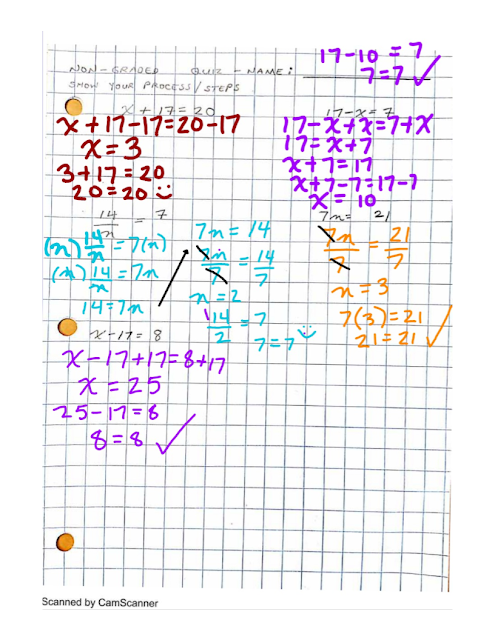 17-10 = 7
7=7 ✓
NON-GRADED QUIZ - NAME:
SHOW YOUR PROCESS/STEPS
x + 17 = 20
x + 17-17=20-17
x = 3
3+17 = 20
20=20
17-x = 7
17-x+x=7+x
17=x+7
x+7=17
x+7-7=17-7
x = 10
14/n = 7
(n) 14/n = 7(n)
(n) 14/n = 7n
14=7n
7n = 14
7n/7 = 14/7
n = 2
14/2 = 7
7=7
7n= 21
7n/7 = 21/7
n = 3
7(3)=21
21=21 ✓
x-17 = 8
x-17+17=8+17
x = 25
25-17=8
8=8 ✓
Scanned by CamScanner